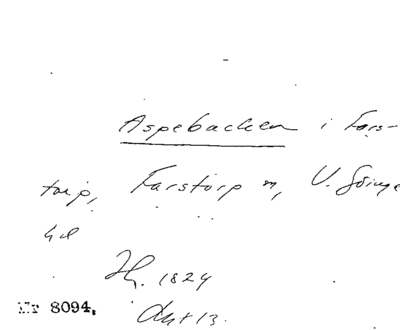 Aspebacken i Fars-
torp, Farstorp sn, V. Göinge
hd
Hf. 1824
Akt 13.
Nr 8094.